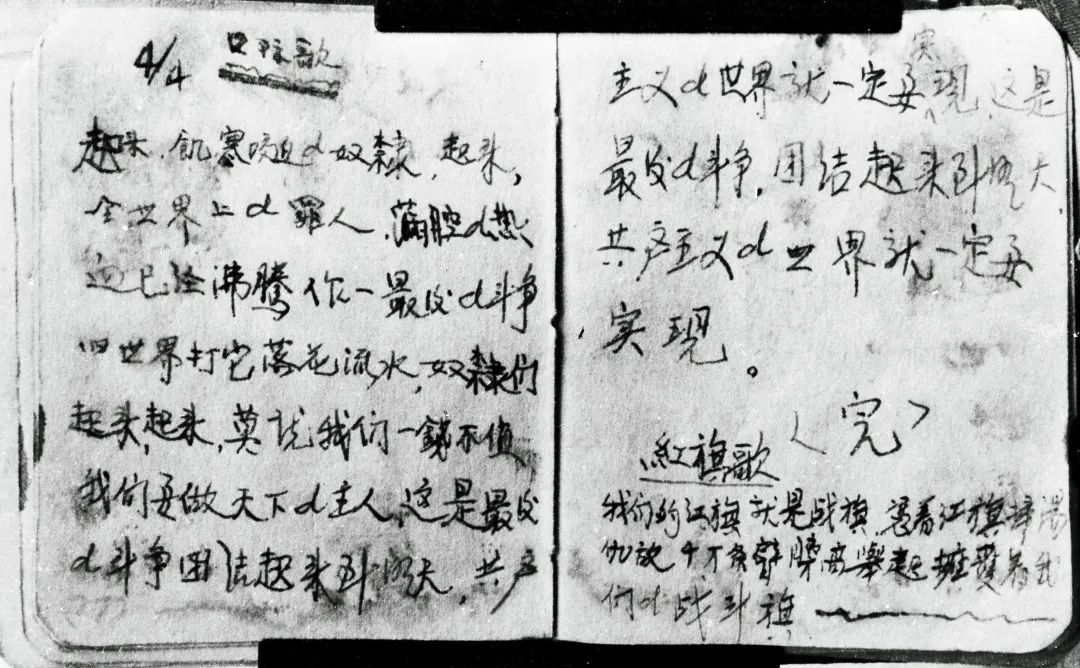 4/4 口际歌
起来，飢寒迫d奴隶，起来，
全世界上d罪人，满腔d热
血已经沸腾作一最后d斗争
旧世界打它落花流水，奴隶们
起来，起来，莫说我们一錢不值
我们要做天下d主人，这是最后
d斗争团结起来到明天，共产
主义d世界就一定要实现，这是
最后d斗争，团结起来到明天
共产主义d世界就一定要
实现。
〈完〉
紅旗歌
我们的红旗就是战旗，
高舉起擁護着我
们d战斗旗